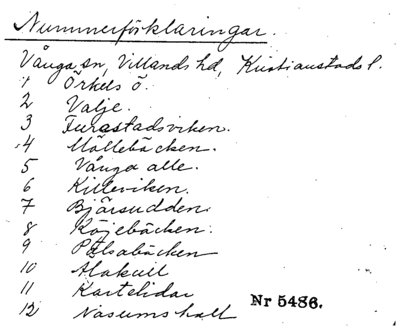 Nummerförklaringar.
Vånga sn, Villands hd, Kristianstads l.
1 Örkels ö.
2 Valje.
3 Furastadsviken.
4 Möllebäcken.
5 Vånga alle.
6 Killeviken.
7 Bjärsudden.
8 Köjebäcken.
9 Pålsabäcken
10 Alakull
11 Kartelidar
12 Näsums hall
Nr 5486.